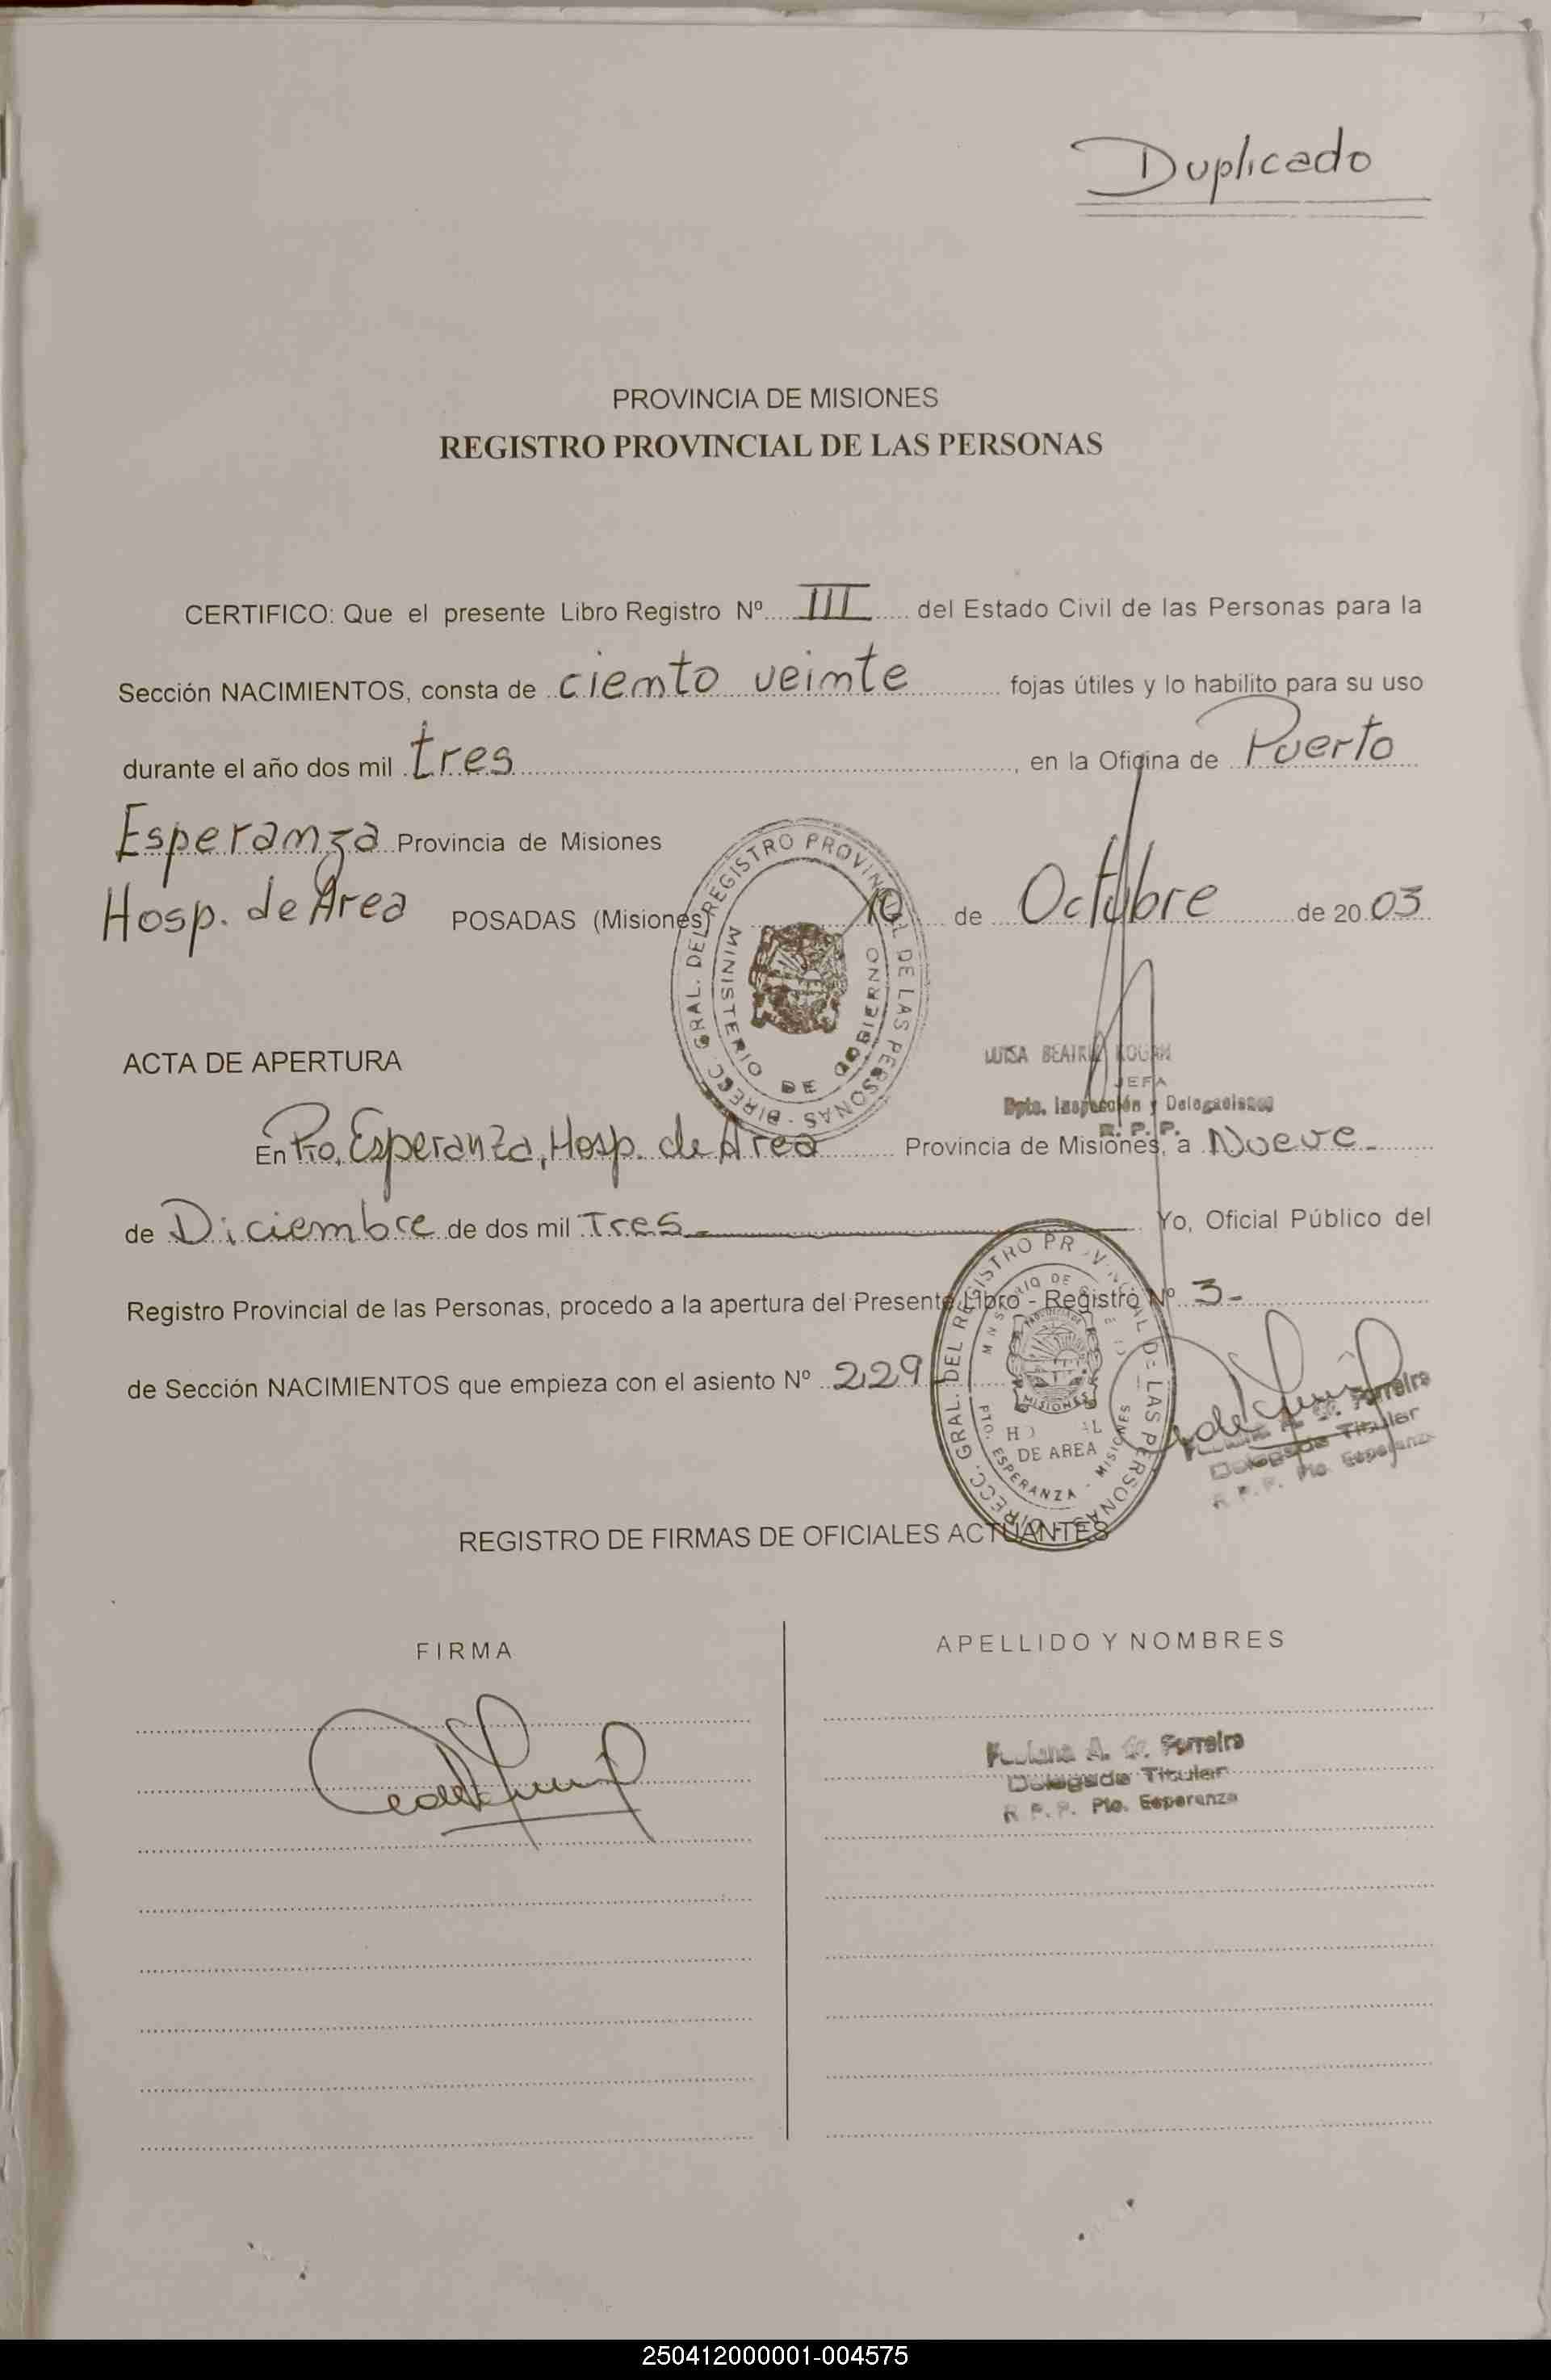 Duplicado
PROVINCIA DE MISIONES
REGISTRO PROVINCIAL DE LAS PERSONAS
CERTIFICO: Que el presente Libro Registro Nº III del Estado Civil de las Personas para la
Sección NACIMIENTOS, consta de ciento veinte fojas útiles y lo habilito para su uso
durante el año dos mil tres, en la Oficina de Puerto
Esperanza Provincia de Misiones
Hosp. de Area POSADAS (Misiones) 10 de Octubre de 2003
DIRECC. GRAL. DEL REGISTRO PROVINCIAL DE LAS PERSONAS
MINISTERIO DE GOBIERNO
LUISA BEATRIZ KOGAN
JEFA
Dpto. Inspección y Delegaciones
R. P. P.
ACTA DE APERTURA
En Pto, Esperanza, Hosp. de Area Provincia de Misiones, a Nueve -
de Diciembre de dos mil Tres - Yo, Oficial Público del
Registro Provincial de las Personas, procedo a la apertura del Presente Libro - Registro Nº 3-
de Sección NACIMIENTOS que empieza con el asiento Nº 229-
DIRECC. GRAL. DEL REGISTRO PROVINCIAL DE LAS PERSONAS
MISIONES
DE AREA
PTO. ESPERANZA - MISIONES
Ferreira
Delegada Titular
R. P. P. Pto. Esperanza
REGISTRO DE FIRMAS DE OFICIALES ACTUANTES
FIRMA
APELLIDO Y NOMBRES
A. Ferreira
Delegada Titular
R. P. P. Pto. Esperanza
250412000001-004575